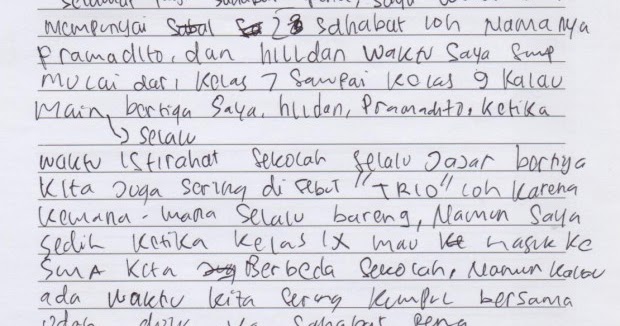 mempunyai 2 sahabat loh Namanya
Pramadito, dan hilldan waktu saya smp
mulai dari kelas 7 sampai kelas 9 kalau
main, bertiga saya, hildan, Pramadito, ketika
→ selalu
waktu istirahat sekolah selalu Jajar bertiga
kita Juga sering di sebut "TRIO" loh karena
kemana-mana selalu bareng, Namun saya
sedih ketika kelas IX mau masuk ke
SMA kita Berbeda sekolah, Namun kalau
ada waktu kita sering kumpul bersama
sahabat pena